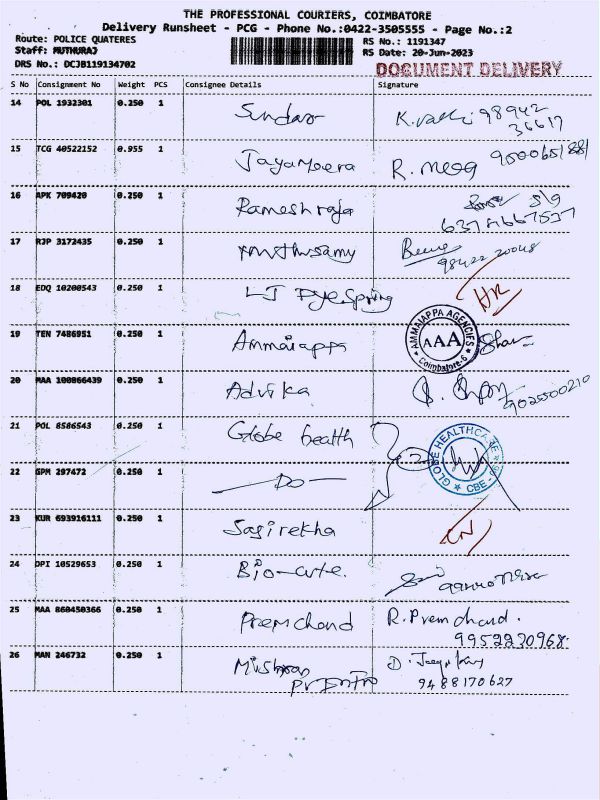 THE PROFESSIONAL COURIERS, COIMBATORE
Delivery Runsheet - PCG - Phone No.:0422-3505555 - Page No.:2
Route: POLICE QUATERES
Staff: MUTHURAJ
DRS No.: DCJB119134702
RS No.: 1191347
RS Date: 20-Jun-2023
DOCUMENT DELIVERY
S No Consignment No Weight PCS Consignee Details Signature
14 POL 1932301 0.250 1 Sundar 98942
36617
15 TCG 40522152 0.955 1 Jayameera R. meea
16 APK 709420 0.250 1 Ramesh raja
17 RJP 3172435 0.250 1 muthusamy
98422 20048
18 EDQ 10200543 0.250 1 LJ
19 TEN 7486951 0.250 1 Ammaiappa AMMAIAPPA AGENCIES AAA Coimbatore-6
20 MAA 100866439 0.250 1 Advika
21 POL 8586543 0.250 1 Globe health GLOBE HEALTHCARE CBE
22 GPM 297472 0.250 1 — Do —
23 KUR 693916111 0.250 1 Sasirekha
24 DPI 10529653 0.250 1 Bio-cute.
25 MAA 860450366 0.250 1 Premchand R. Premchand.
9952230968
26 MAN 246732 0.250 1
9488170627